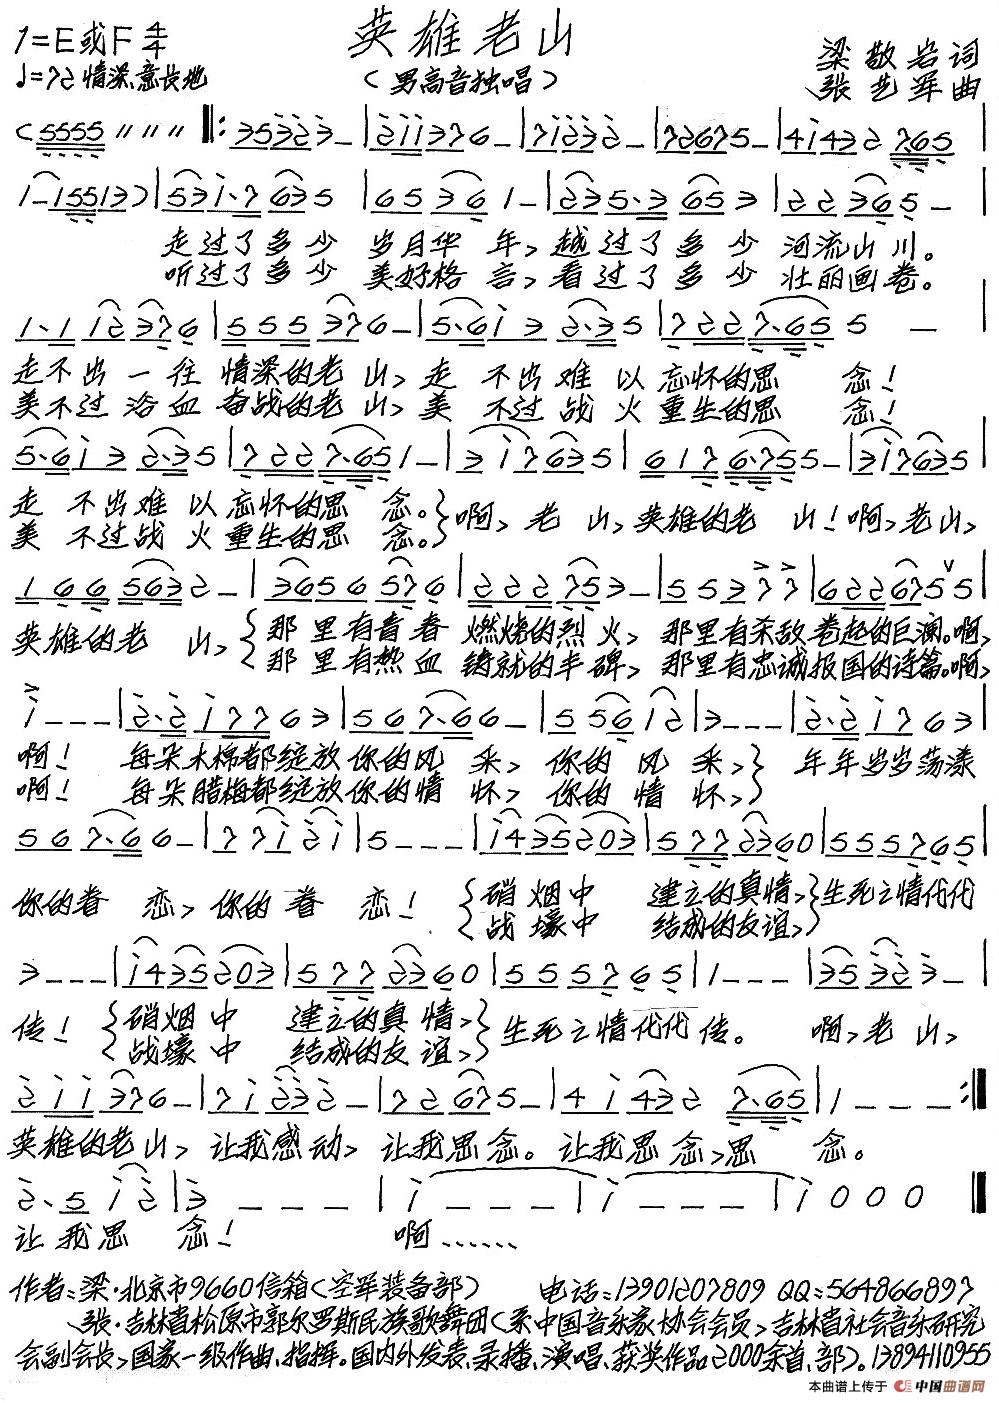 英雄老山
1=E或F 4/4
(男高音独唱)
梁敬岩词
♩=72 情深意长地
张艺军曲
走过了多少 岁月华年, 越过了多少 河流山川。
听过了多少 美好格言, 看过了多少 壮丽画卷。
走不出一往情深的老山, 走不出难以忘怀的思念!
美不过浴血奋战的老山, 美不过战火重生的思念!
走不出难以忘怀的思念。}啊, 老山, 英雄的老山! 啊, 老山,
美不过战火重生的思念。
英雄的老山, {那里有青春燃烧的烈火, 那里有杀敌卷起的巨澜。啊,
那里有热血铸就的丰碑, 那里有忠诚报国的诗篇。啊,
啊! 每朵木棉都绽放你的风采, 你的风采,} 年年岁岁荡漾
啊! 每朵腊梅都绽放你的情怀, 你的情怀,
你的眷恋, 你的眷恋! {硝烟中 建立的真情,}生死之情代代
战壕中 结成的友谊,
传! {硝烟中 建立的真情,}生死之情代代传。 啊, 老山,
战壕中 结成的友谊,
英雄的老山, 让我感动, 让我思念。让我思念, 思念。
让我思念! 啊……
作者:梁·北京市9660信箱(空军装备部) 电话:13901207809 QQ:564866897
张·吉林省松原市郭尔罗斯民族歌舞团(系中国音乐家协会会员,吉林省社会音乐研究
会副会长,国家一级作曲、指挥。国内外发表、录播、演唱、获奖作品2000余首、部)。13894110955
本曲谱上传于 中国曲谱网